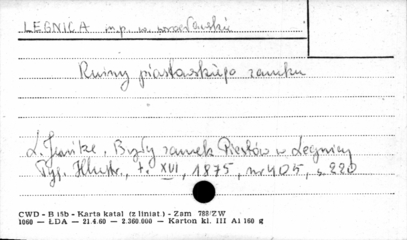 LEGNICA mp. w. wrocławski
Ruiny piastowskiego zamku
L. Jenike. Były zamek Piastów w Legnicy
Tyg. Illustr., t. XVI, 1875, nr 405, s. 220
CWD - B 15b - Karta katal (z liniat.) - Zam 788/ZW
1060 — ŁDA — 21.4.60 — 2.360.000 — Karton kl. III A1 160 g